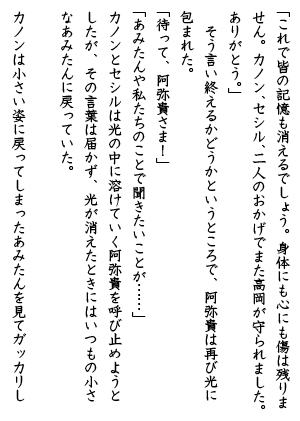 「これで皆の記憶も消えるでしょう。身体にも心にも傷は残りま
せん。カノン、セシル、二人のおかげでまた高岡が守られました。
ありがとう。」
　そう言い終えるかどうかというところで、阿弥貴は再び光に
包まれた。
「待って、阿弥貴さま！」
「あみたんや私たちのことで聞きたいことが……」
カノンとセシルは光の中に溶けていく阿弥貴を呼び止めようと
したが、その言葉は届かず、光が消えたときにはいつもの小さ
なあみたんに戻っていた。
カノンは小さい姿に戻ってしまったあみたんを見てガッカリし